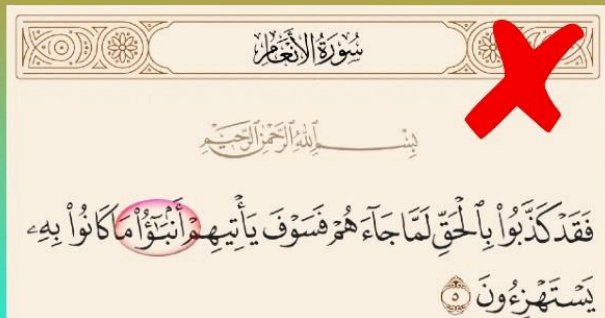 سُورَةُ الأَنْعَامِ
بِسْمِ اللَّهِ الرَّحْمَٰنِ الرَّحِيمِ
فَقَدْ كَذَّبُوا۟ بِٱلْحَقِّ لَمَّا جَآءَهُمْ فَسَوْفَ يَأْتِيهِمْ أَنۢبَـٰٓؤُا۟ مَا كَانُوا۟ بِهِۦ
يَسْتَهْزِءُونَ ٥